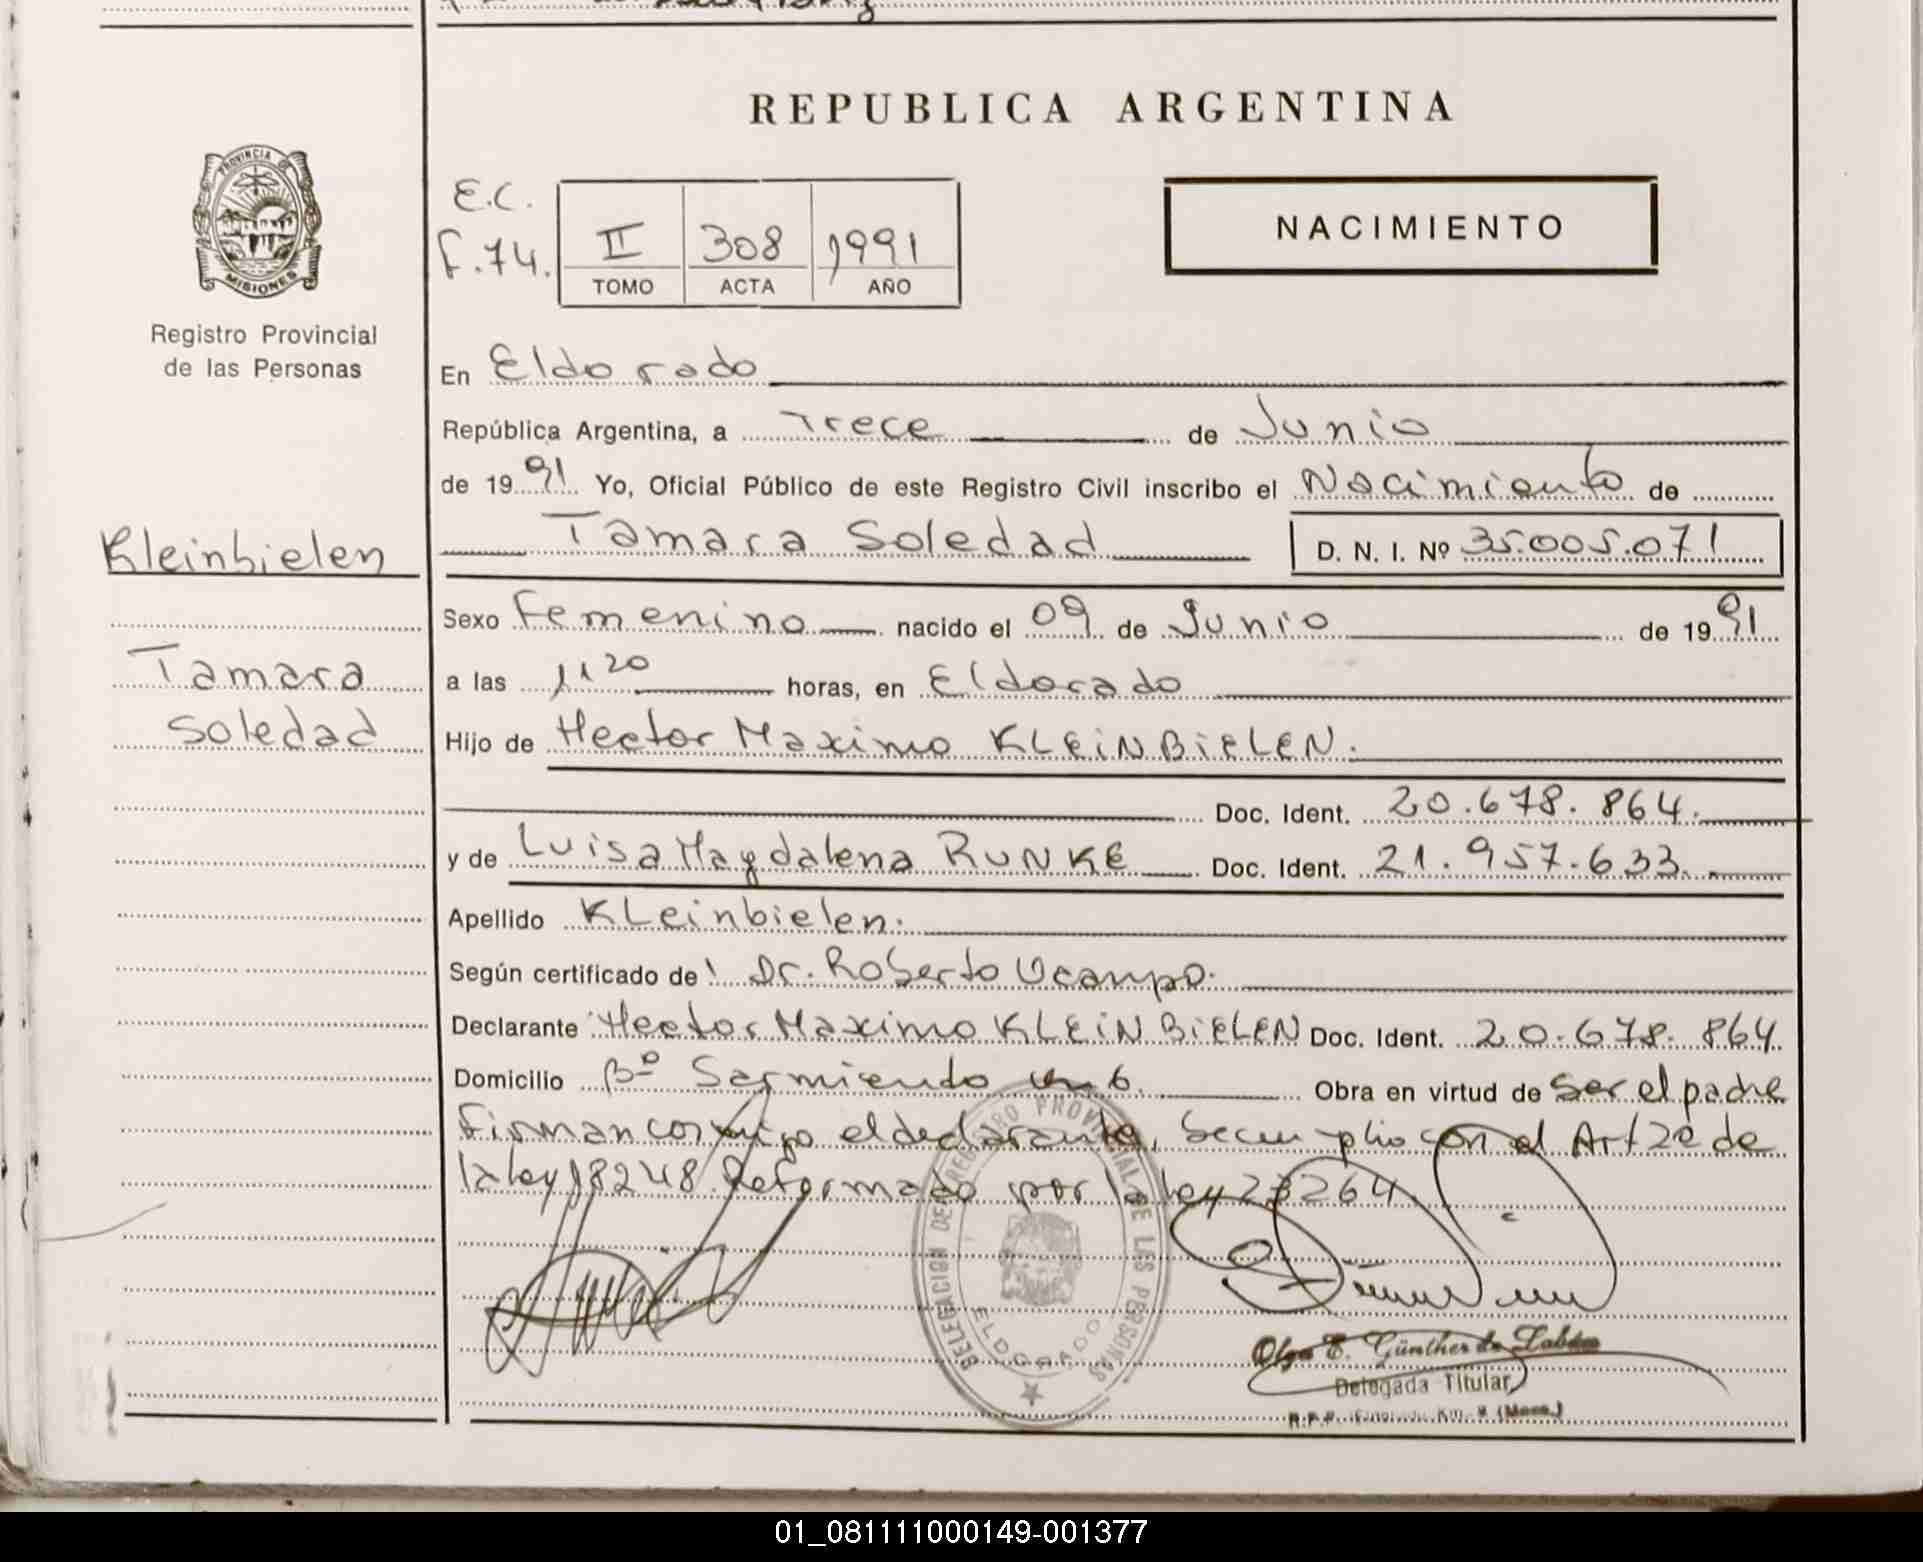 REPUBLICA ARGENTINA
PROVINCIA DE
MISIONES
Registro Provincial
de las Personas
E.C.
F.74.
II 308 1991
TOMO ACTA AÑO
NACIMIENTO
En Eldorado
República Argentina, a Trece de Junio
de 1991 Yo, Oficial Público de este Registro Civil inscribo el Nacimiento de
Kleinbielen
Tamara Soledad D. N. I. Nº 35.005.071
Sexo Femenino nacido el 09 de Junio de 1991
Tamara
a las 11 20 horas, en Eldorado
Soledad
Hijo de Hector Maximo KLEINBIELEN.
Doc. Ident. 20.678.864.
y de Luisa Magdalena RUNKE Doc. Ident. 21.957.633.
Apellido KLeinbielen.
Según certificado de Dr. Roberto Ocampo.
Declarante Hector Maximo KLEINBIELEN Doc. Ident. 20.678.864
Domicilio Bº Sarmiento km 6. Obra en virtud de Ser el padre
Firman conmigo el declarante, Se cumplio con el Art 2º de
la ley 18248 Reformado por la ley 23264.
DELEGACION DE REGISTRO PROVINCIAL DE LAS PERSONAS
ELDORADO
Olga E. Günther de Labán
Delegada Titular
01_081111000149-001377